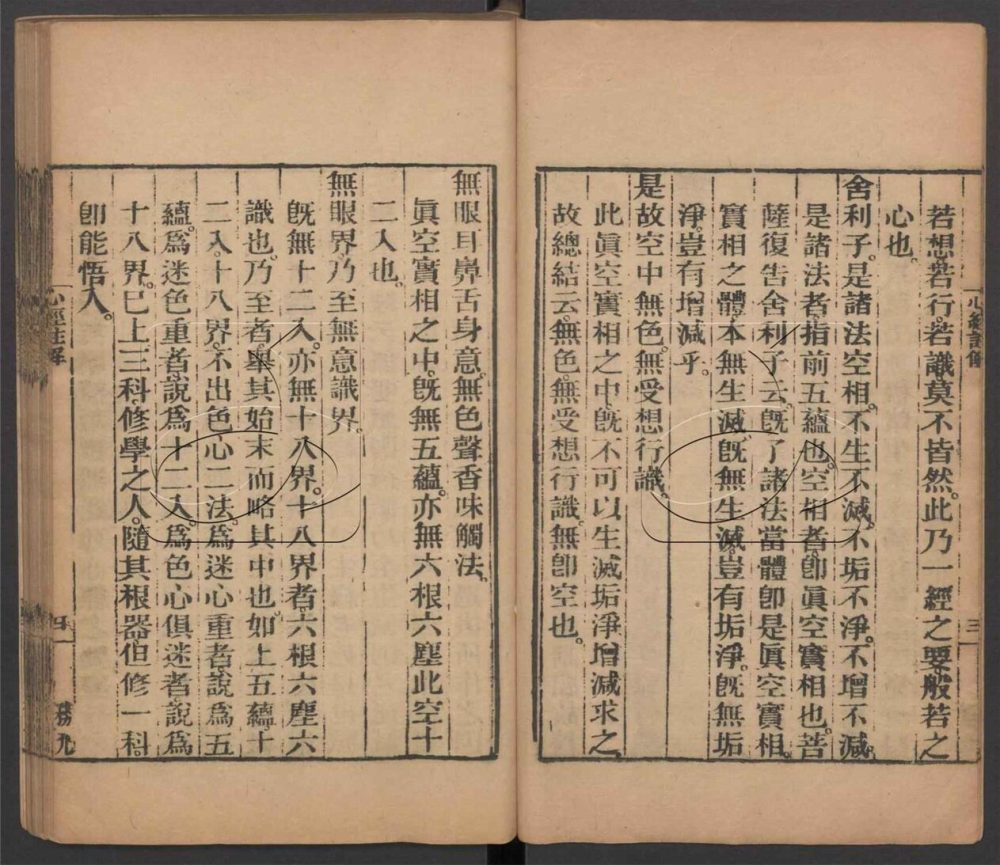 若想。若行。若識莫不皆然。此乃一經之要。般若之
心也。
舍利子。是諸法空相。不生不滅。不垢不淨。不增不減。
是諸法者。指前五蘊也。空相者。卽眞空實相也。菩
薩復告舍利子云。旣了諸法當體卽是眞空實相。
實相之體。本無生滅。旣無生滅。豈有垢淨。旣無垢
淨。豈有增減乎。
是故空中無色。無受想行識。
此眞空實相之中。旣不可以生滅垢淨增減求之。
故總結云。無色。無受想行識。無卽空也。
無眼耳鼻舌身意。無色聲香味觸法。
眞空實相之中。旣無五蘊。亦無六根六塵。此空十
二入也。
無眼界。乃至無意識界。
旣無十二入。亦無十八界。十八界者。六根六塵六
識也。乃至者。舉其始末而略其中也。如上五蘊十
二入。十八界。不出色心二法。爲迷心重者。說爲五
蘊。爲迷色重者。說爲十二入。爲色心俱迷者。說爲
十八界。已上三科。修學之人。隨其根器。但修一科。
卽能悟入。
心經註解
三
務九